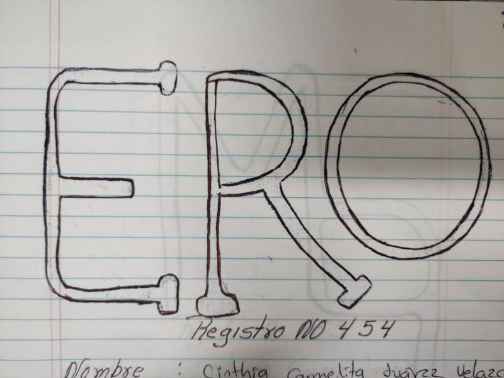 ERO
Registro NO 454
Nombre : Cinthia Carmelita Juárez